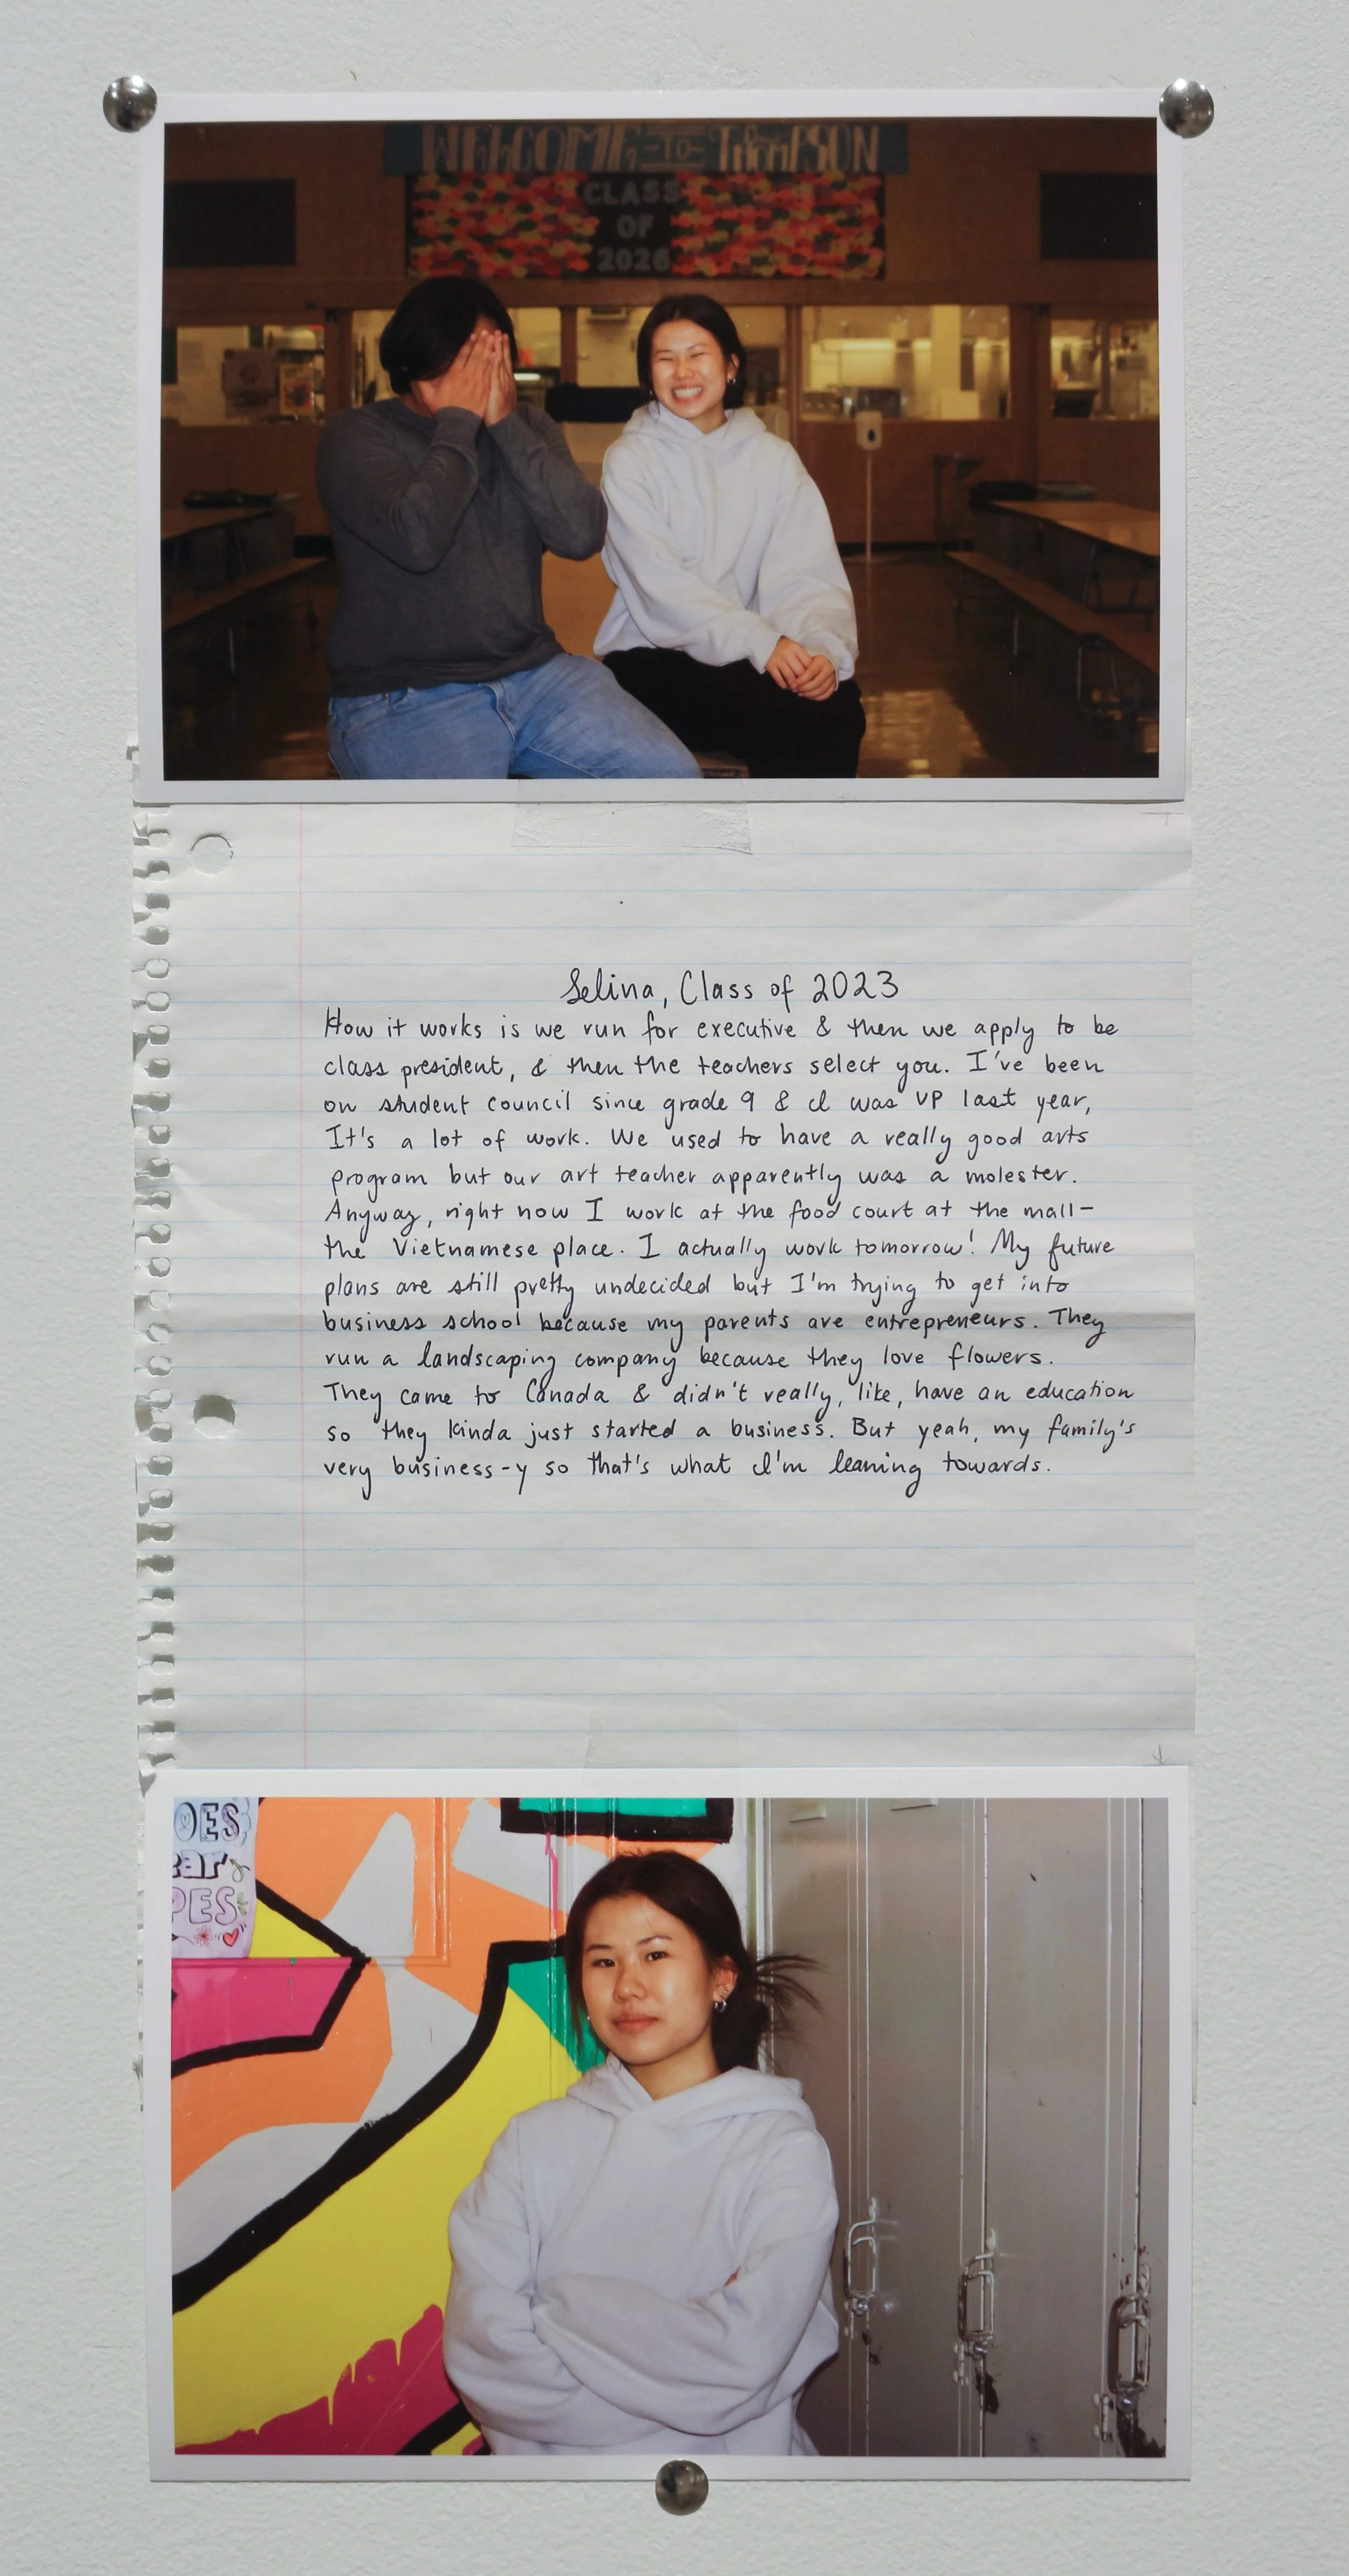 WELCOME -TO- THOMPSON
CLASS
OF
2026
Selina, Class of 2023
How it works is we run for executive & then we apply to be
class president, & then the teachers select you. I've been
on student council since grade 9 & I was VP last year,
It's a lot of work. We used to have a really good arts
program but our art teacher apparently was a molester.
Anyway, right now I work at the food court at the mall-
the Vietnamese place. I actually work tomorrow! My future
plans are still pretty undecided but I'm trying to get into
business school because my parents are entrepreneurs. They
run a landscaping company because they love flowers.
They came to Canada & didn't really, like, have an education
so they kinda just started a business. But yeah, my family's
very business-y so that's what I'm leaning towards.
OES
ear
PES